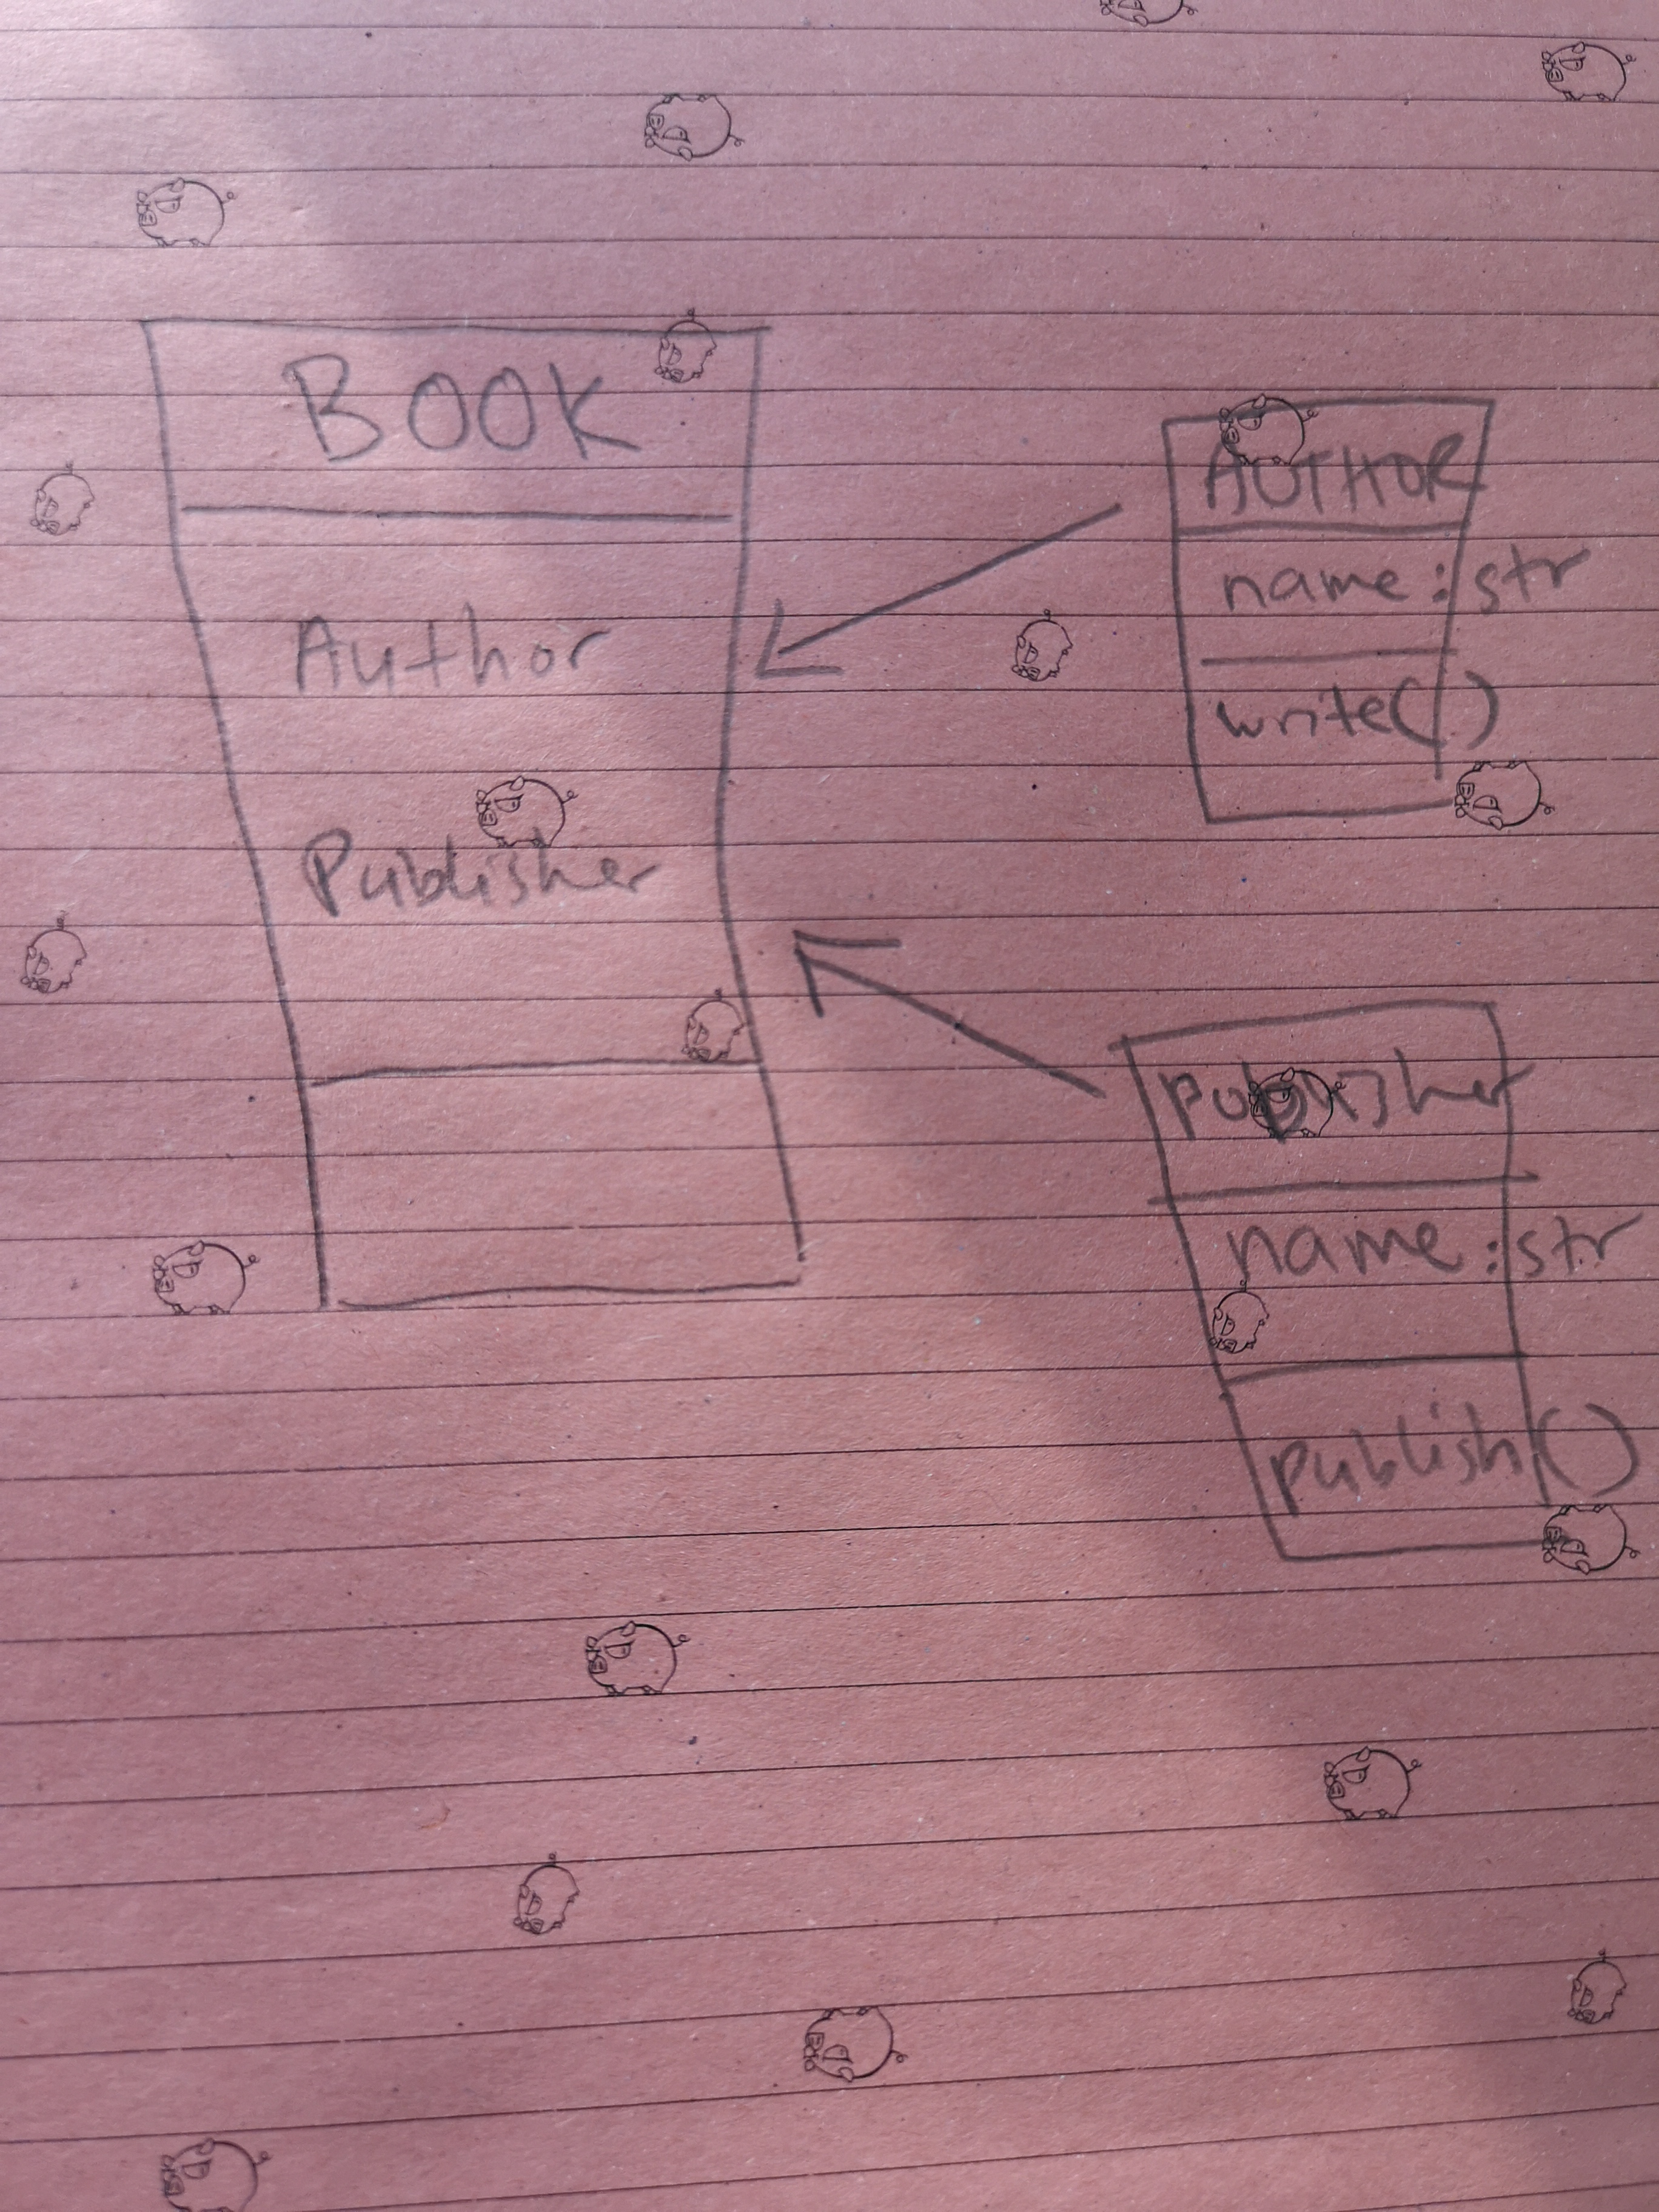 BOOK
Author
Publisher
AUTHOR
name: str
write()
publisher
name: str
publish()